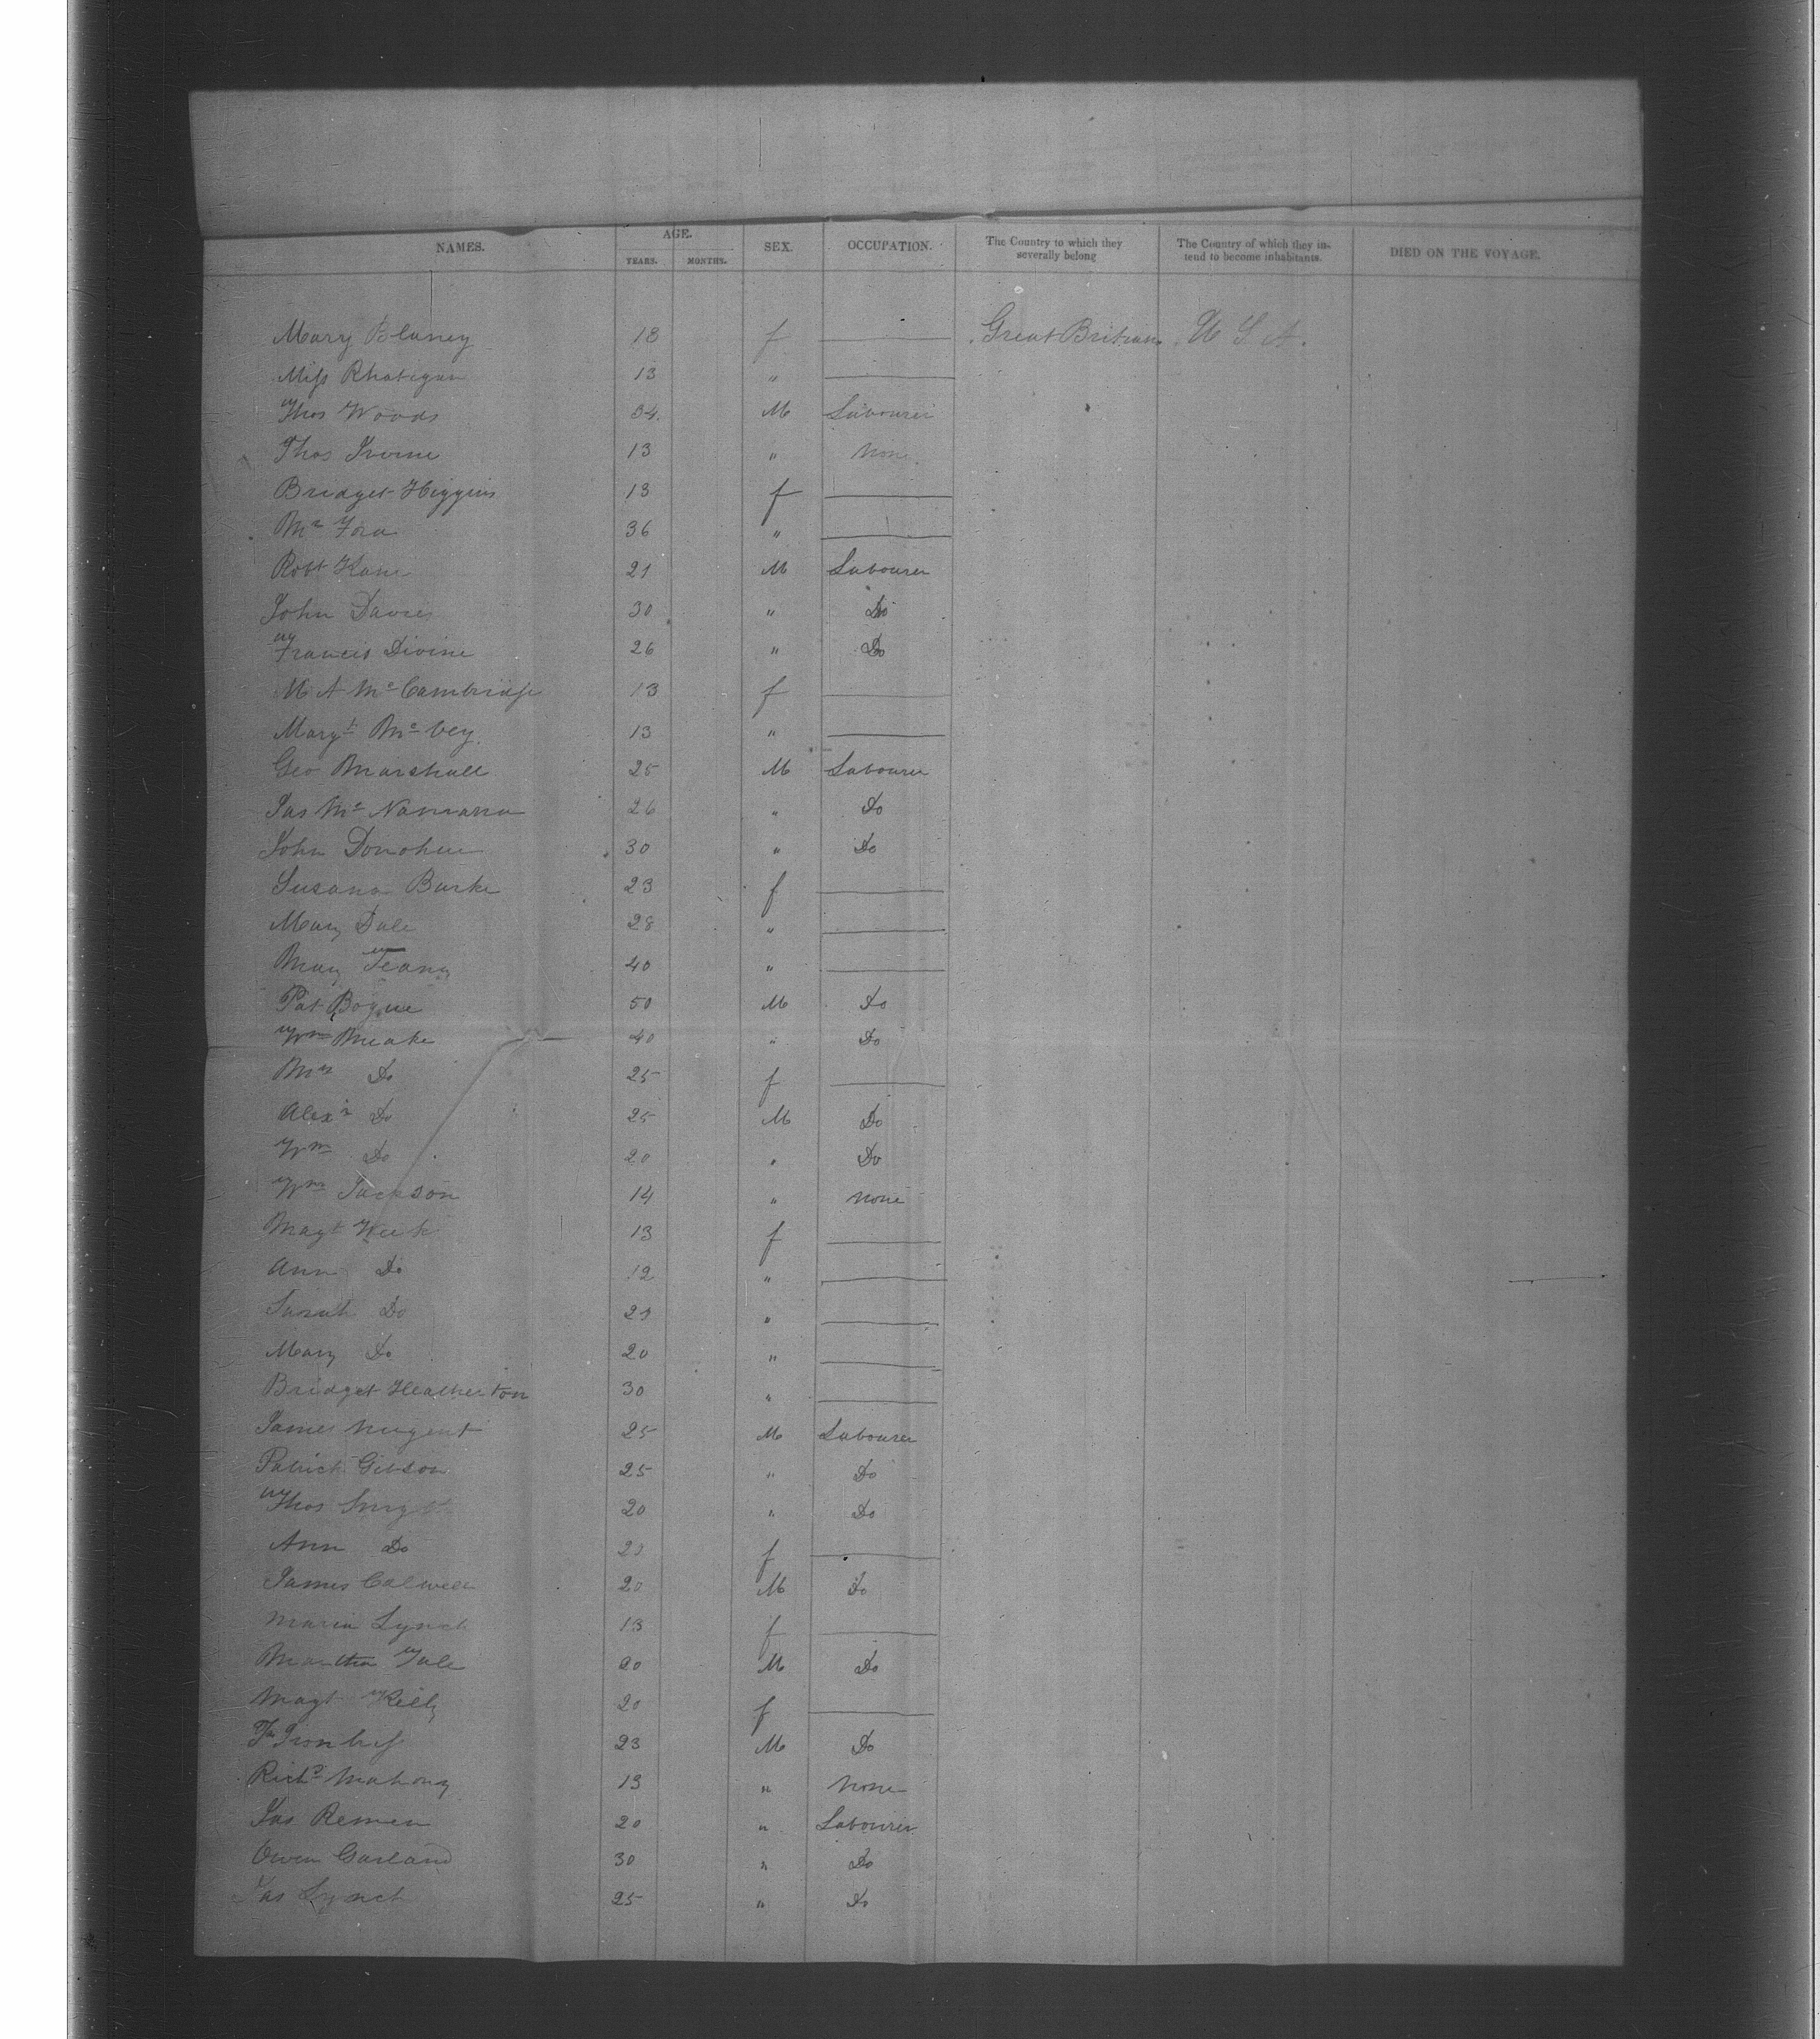 NAMES. AGE. YEARS. MONTHS. SEX. OCCUPATION. The Country to which they severally belong The Country of which they intend to become inhabitants. DIED ON THE VOYAGE.
Mary Blaney 18 f — Great Britian U S A.
Miss Rhatigan 13 " —
Thos Woods 34. M Labourer
Thos Irvine 13 " None
Bridget Higgins 13 f —
36 " —
Robt Kane 21 M Labourer
John Davies 30 " Do
Francis Divine 26 " Do
M A Mc Cambridge 13 f —
Margt Mc Vey 13 " —
Geo Marshall 25 M Labourer
Jas Mc Namarra 26 " Do
John Donohue 30 " Do
Susana Burke 23 f —
Mary Dale 28 " —
Mary 40 " —
Pat Bogue 50 M Do
Wm Meake 40 " Do
Mrs Do 25 f —
Alexr Do 25 M Do
Wm Do 20 " Do
Wm Jackson 14 " none
Magt 13 f —
Ann Do 12 " —
Sarah Do 21 " —
Mary Do 20 " —
Bridget Heatherton 30 " —
James Nugent 25 M Labourer
Patrick Gibson 25 " Do
Thos 20 " Do
Ann Do 20 f —
James Calwell 20 M Do
Maria Lynch 13 f —
Martha 20 M Do
Magt Kelly 20 f —
23 M Do
Richd Mahony 13 " None
Jas 20 " Labourer
Owen Garland 30 " Do
Jas Lynch 25 " Do